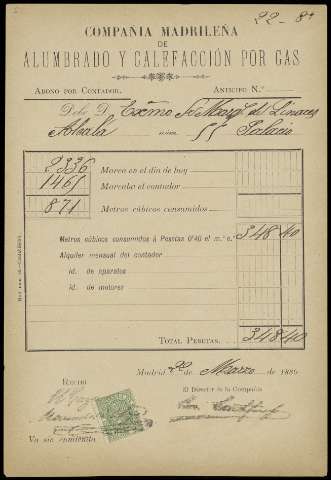 22-8º
COMPAÑIA MADRILEÑA
DE
ALUMBRADO Y CALEFACCIÓN POR GAS
ABONO POR CONTADOR. ANTICIPO N.º
Debe D. Excmo Sr Marqs de Linares
Alcala núm. 55 Palacio
2336 Marca en el día de hoy
1465 Marcaba el contador
871 Metros cúbicos consumidos
Metros cúbicos consumidos á Pesetas 0'40 el m.³ c.º 348 40
Alquiler mensual del contador
id. de aparatos
id. de motores
TOTAL PESETAS. 348 40
Madrid 20 de Marzo de 188
Recibí El Director de la Compañía
Va sin enmienda